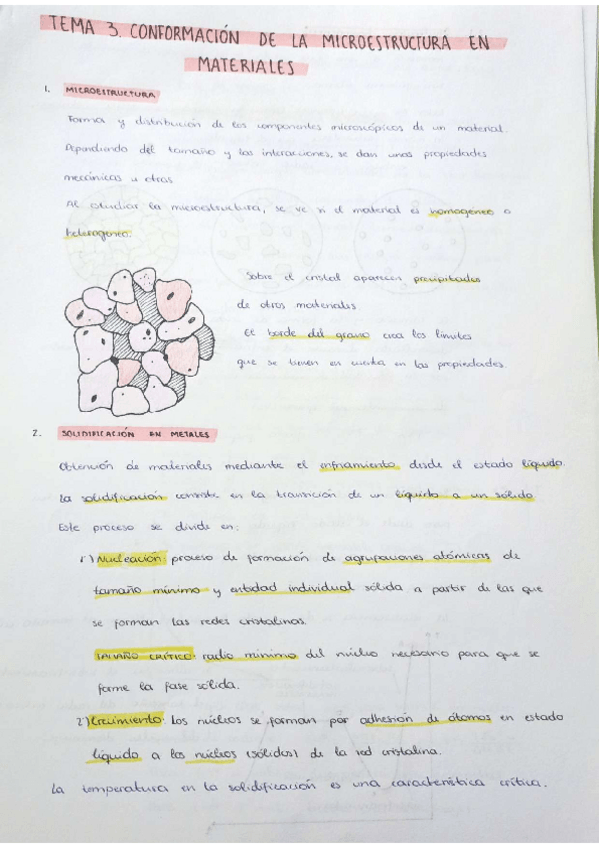 TEMA 3. CONFORMACIÓN DE LA MICROESTRUCTURA EN
MATERIALES
1. MICROESTRUCTURA
Forma y distribución de los componentes microscópicos de un material.
Dependiendo del tamaño y las interacciones, se dan unas propiedades
mecánicas u otras
Al estudiar la microestructura, se ve si el material es homogéneo o
heterogéneo.
Sobre el cristal aparecen precipitados
de otros materiales
El borde del grano crea los límites
que se tienen en cuenta en las propiedades.
2. SOLIDIFICACIÓN EN METALES
Obtención de materiales mediante el enfriamiento desde el estado líquido.
La solidificación consiste en la transición de un líquido a un sólido
Este proceso se divide en:
1) Nucleación: proceso de formación de agrupaciones atómicas de
tamaño mínimo y entidad individual sólida a partir de las que
se forman las redes cristalinas.
TAMAÑO CRÍTICO: radio mínimo del núcleo necesario para que se
forme la fase sólida.
2) Crecimiento: los núcleos se forman por adhesión de átomos en estado
líquido a los núcleos (sólidos) de la red cristalina.
La temperatura en la solidificación es una característica crítica.